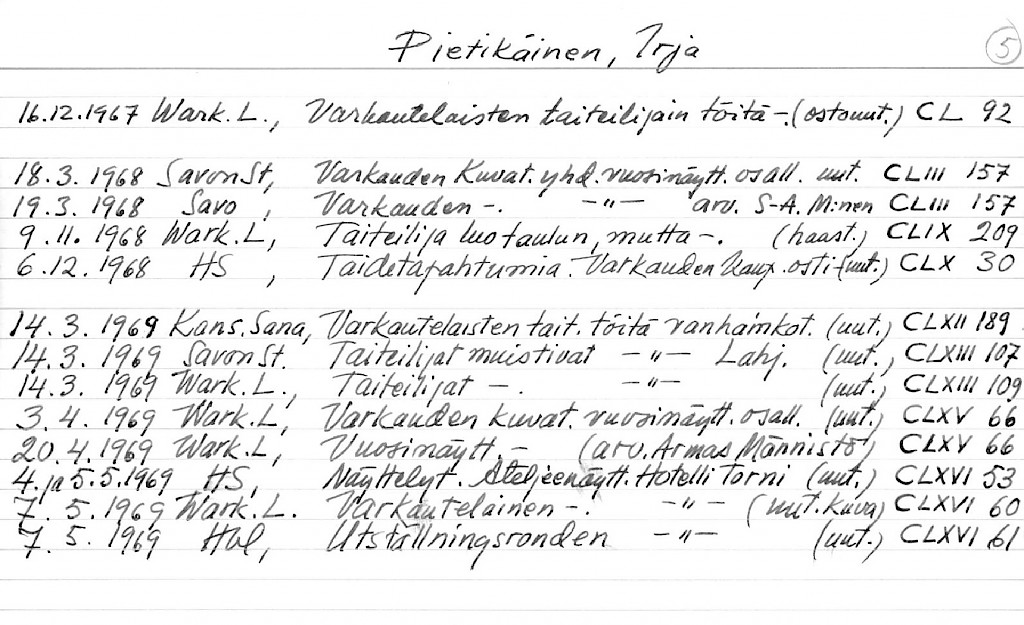 Pietikäinen, Irja 5
16.12.1967 Wark.L., Varkautelaisten taiteilijain töitä -. (ostouut.) CL 92
18.3.1968 SavonSt, Varkauden Kuvat.yhd.vuosinäytt.osall. uut. CLIII 157
19.3.1968 Savo, Varkauden -. -"- arv. S-A. M:nen CLIII 157
9.11.1968 Wark.L, Taiteilija luo taulun, mutta -. (haast.) CLIX 209
6.12.1968 HS, Taidetapahtumia. Varkauden Kaup. osti - (uut.) CLX 30
14.3.1969 Kans.Sana, Varkautelaisten tait. töitä vanhainkot. (uut.) CLXII 189
14.3.1969 SavonSt. Taiteilijat muistivat -"- Lahj. (uut., CLXIII 107
14.3.1969 Wark.L., Taiteilijat -. -"- (uut.) CLXIII 109
3.4.1969 Wark.L, Varkauden kuvat. vuosinäytt.osall. (uut.) CLXV 66
20.4.1969 Wark.L, Vuosinäytt. - (arv. Armas Männistö) CLXV 66
4. ja 5.5.1969 HS, Näyttelyt. Ateljeenäytt. Hotelli Torni (uut.) CLXVI 53
7.5.1969 Wark.L. Varkautelainen -. -"- (uut.kuva) CLXVI 60
7.5.1969 Hbl, Utställningsronden -"- (uut.) CLXVI 61